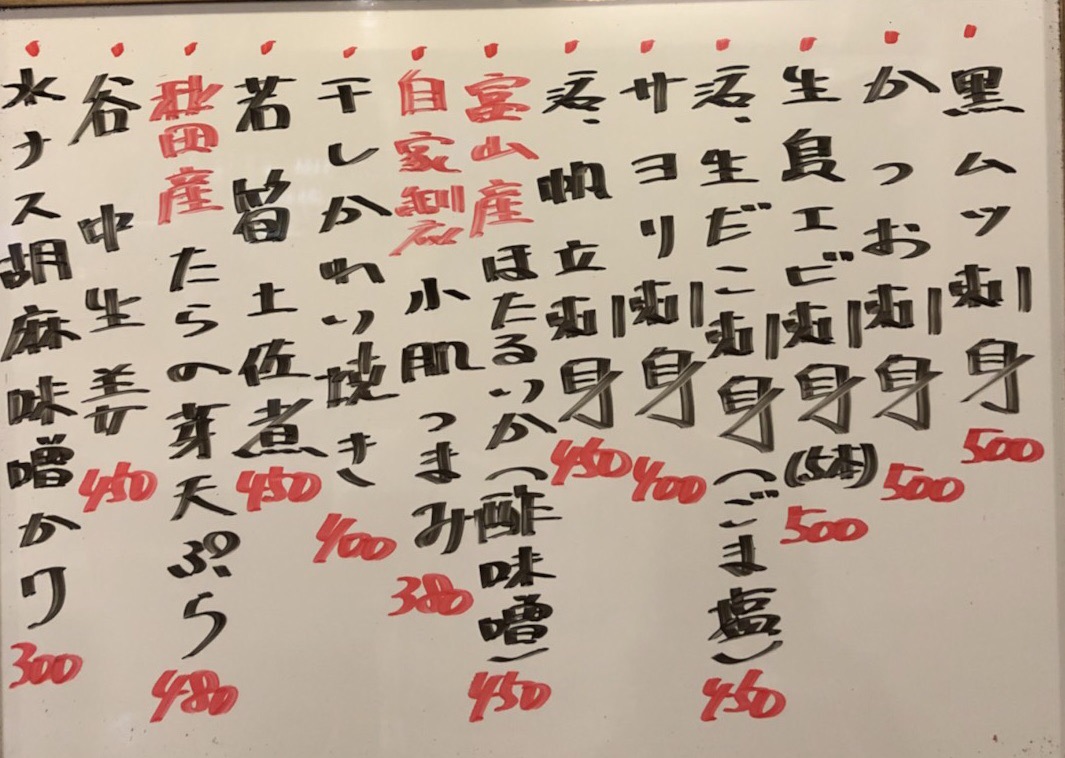 黒ムツ刺身 500
かつお刺身 500
生白エビ刺身(5本) 500
活、生ビこ刺身(ごま塩) 450
サヨリ刺身 400
活、帆立刺身 450
富山産ほたるいか(酢味噌) 450
自家製〆小肌つまみ 380
干しかれい焼き 400
若筍土佐煮 450
秋田産たらの芽天ぷら 480
谷中生姜 450
水ナス胡麻味噌かけ 300